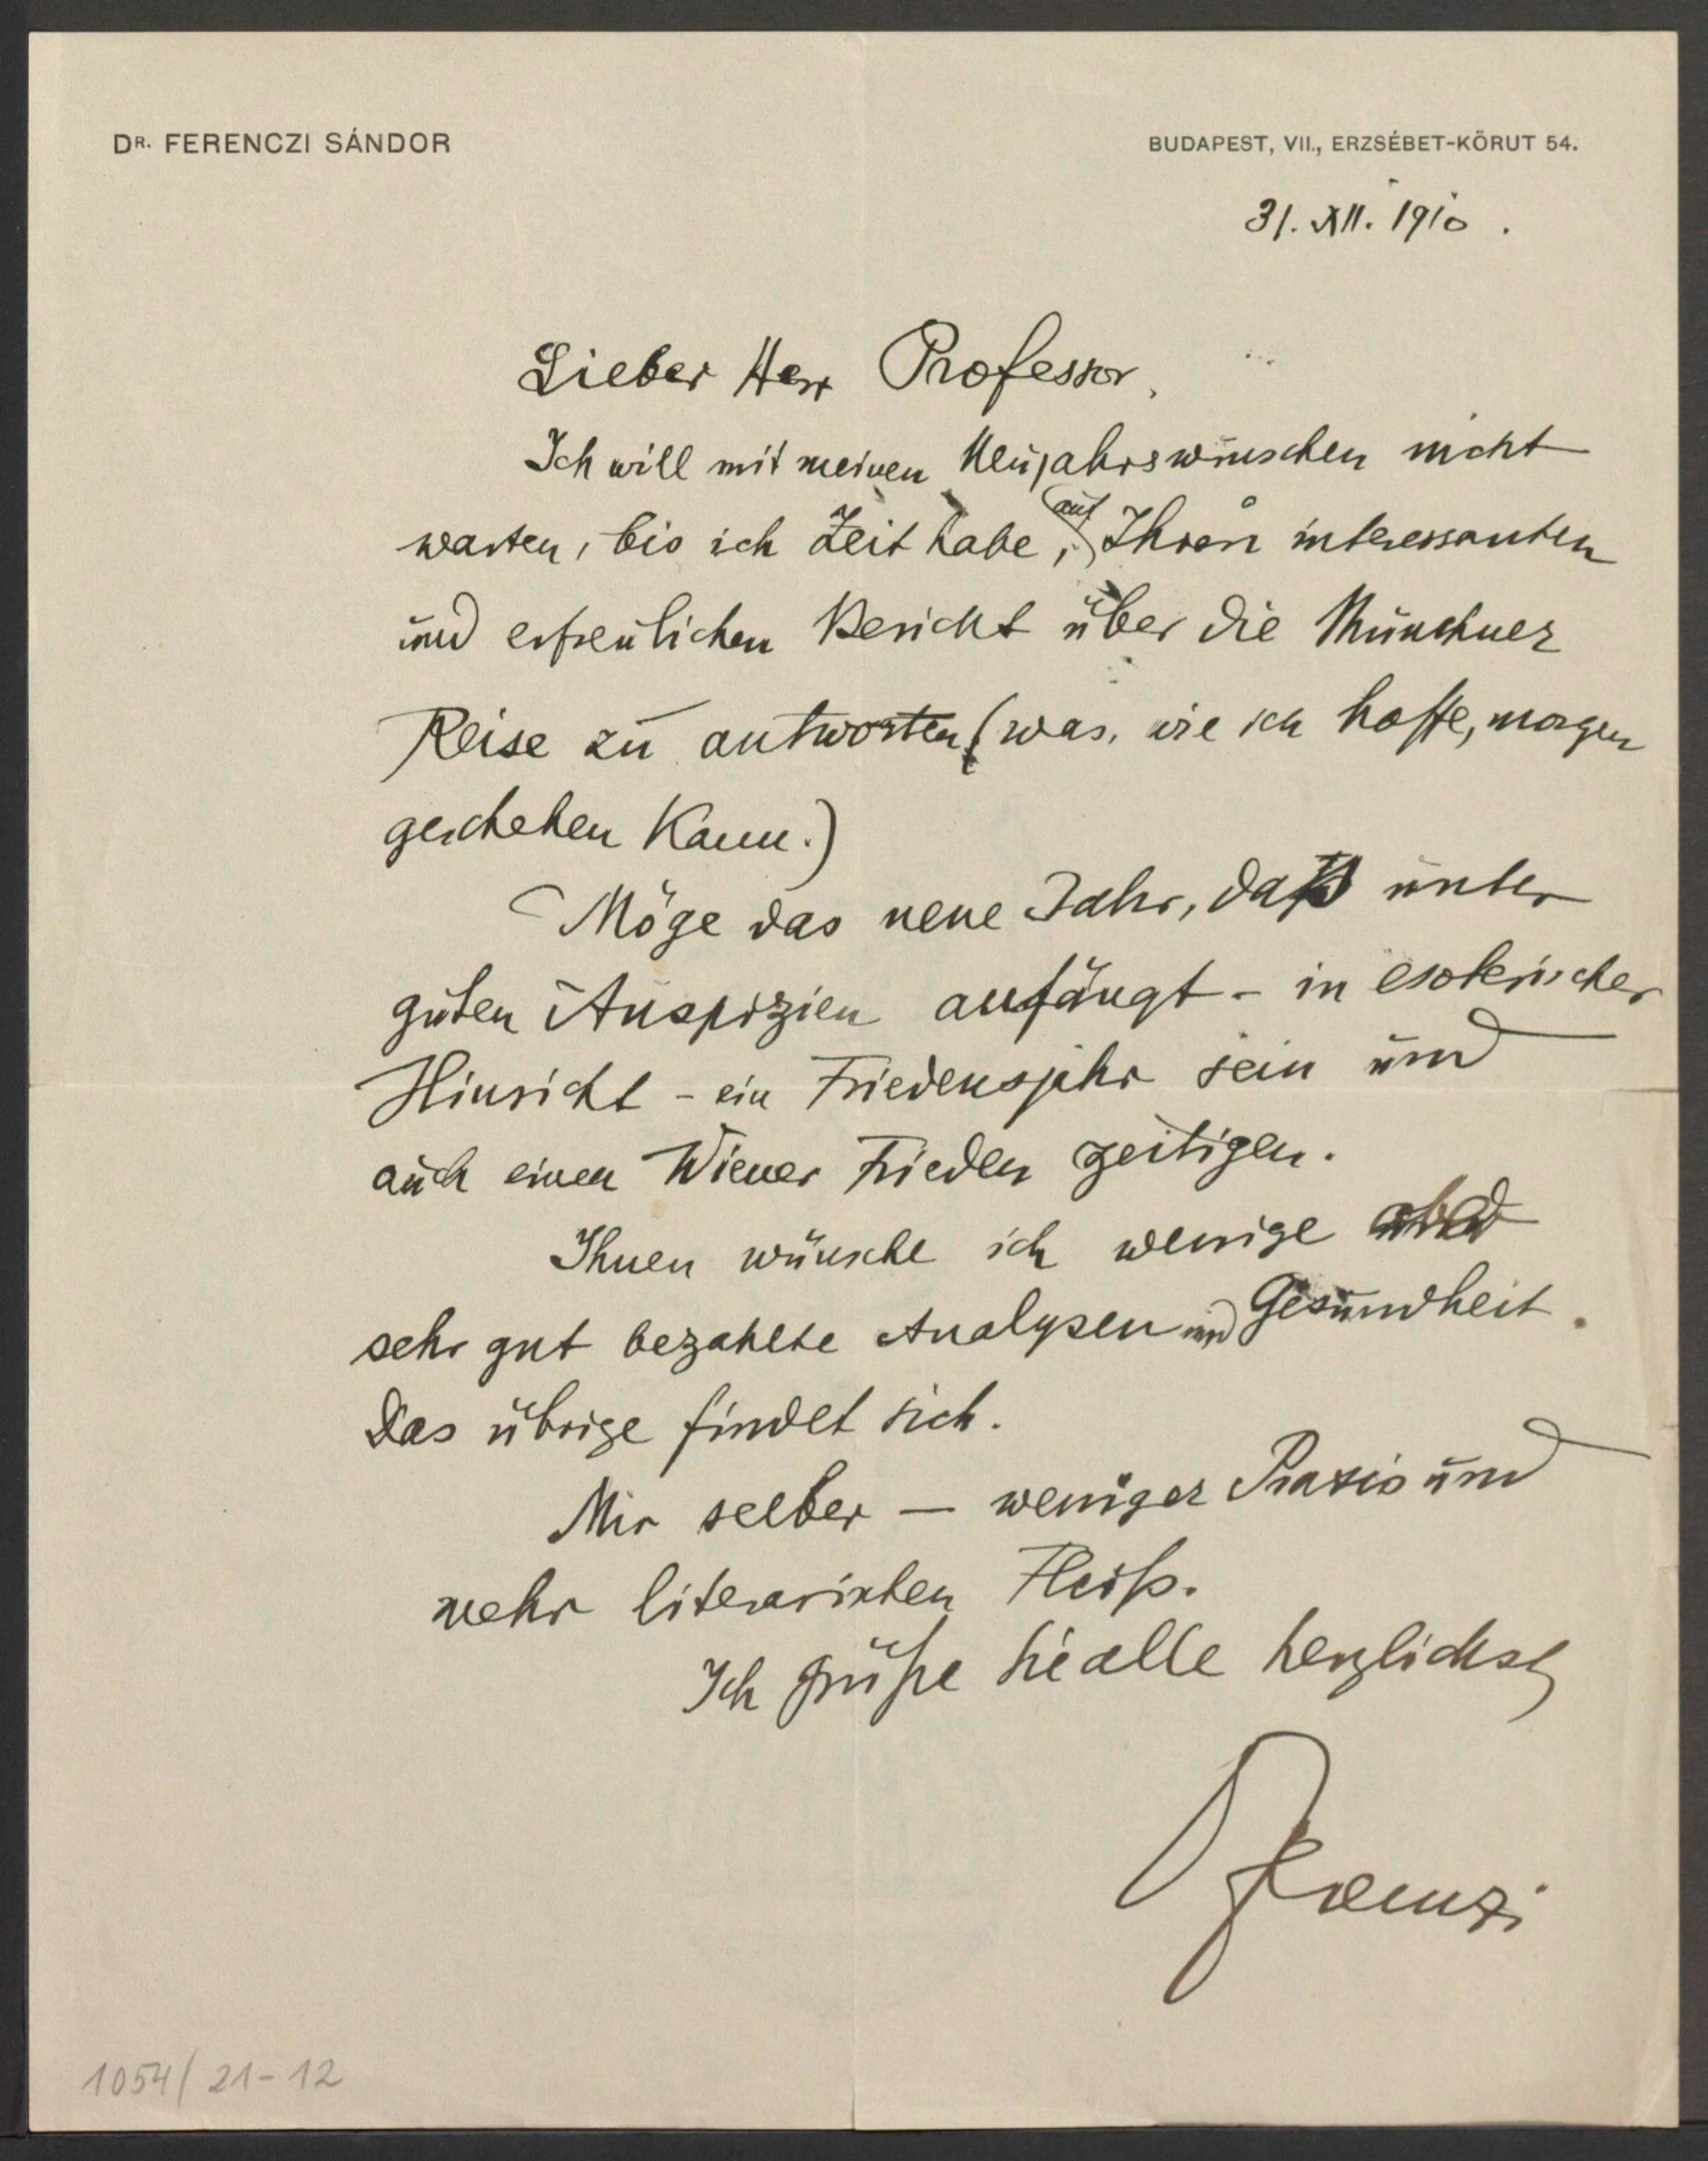 DR. FERENCZI SÁNDOR
BUDAPEST, VII., ERZSÉBET-KÖRUT 54.
31. XII. 1910.
Lieber Herr Professor,
Ich will mit meinen Neujahrswünschen nicht
warten, bis ich Zeit habe, auf Ihren interessanten
und erfreulichen Bericht über die Münchner
Reise zu antworten (was, wie ich hoffe, morgen
geschehen kann.)
Möge das neue Jahr, das unter
guten Auspizien anfängt - in esoterischer
Hinsicht - ein Friedensjahr sein und
auch einen Wiener Frieden zeitigen.
Ihnen wünsche ich wenige
sehr gut bezahlte Analysen und Gesundheit.
Das übrige findet sich.
Mir selber — weniger Praxis und
mehr literarischen Fleiß.
Ich grüße Sie alle herzlichst
Ferenczi
1054/21-12